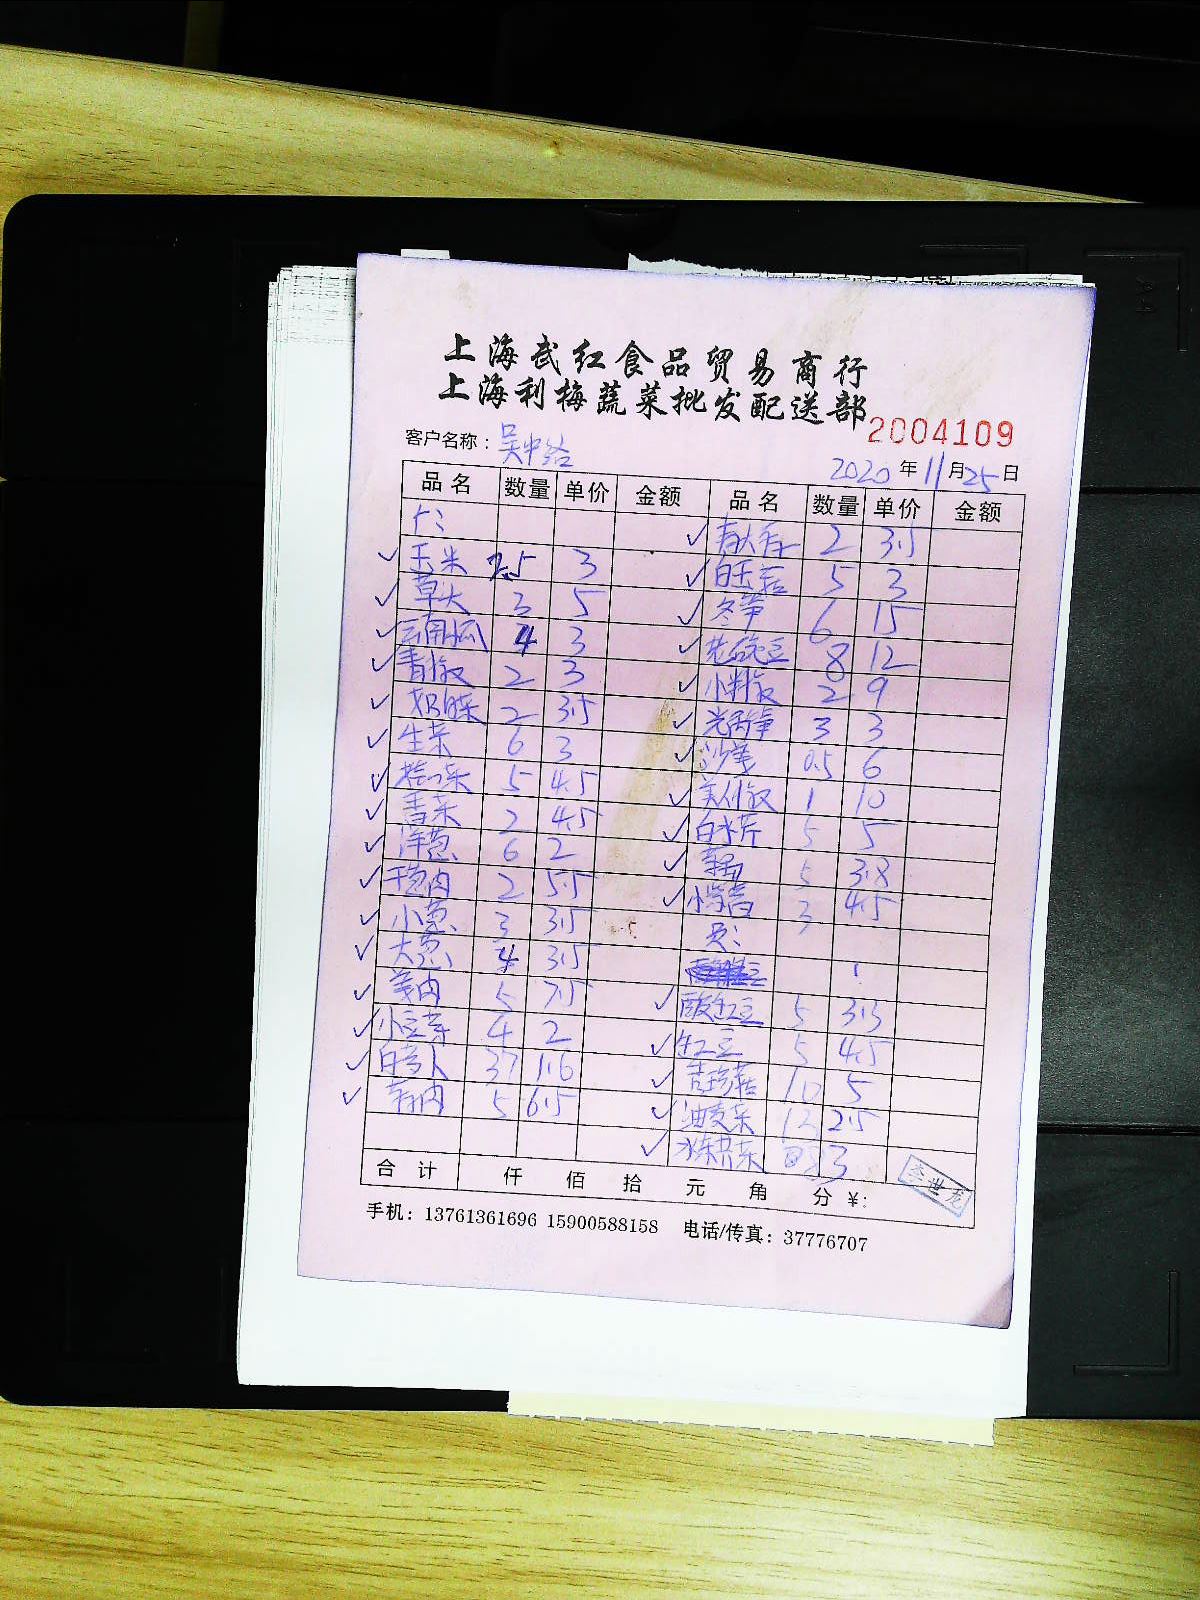 上海武红食品贸易商行
上海利梅蔬菜批发配送部
2004109
客户名称：吴中路
2020年11月25日
品名 数量 单价 金额 品名 数量 单价 金额
上： ✓ 2 3.5
✓ 玉米 2.5 3 ✓ 白玉菇 5 3
✓ 草头 3 5 ✓ 冬笋 6 15
✓ 云南小瓜 4 3 ✓ 老豌豆 8 12
✓ 青椒 2 3 ✓ 小米椒 2 9
✓ 奶白菜 2 3.5 ✓ 光莴笋 3 3
✓ 生菜 6 3 ✓ 沙姜 0.5 6
✓ 5 4.5 ✓ 美人椒 1 10
✓ 香菜 2 4.5 ✓ 白水芹 5 5
✓ 洋葱 6 2 ✓ 5 3.8
✓ 干葱肉 2 5.5 ✓ 小棠菜 3 4.5
✓ 小葱 3 3.5
✓ 大葱 4 3.5
✓ 姜肉 5 7.5 ✓ 酸豇豆 5 3.3
✓ 小豆芽 4 2 ✓ 豇豆 5 4.5
✓ 白萝卜 37 1.6 ✓ 杏珍菇 10 5
✓ 5 6.5 ✓ 油麦菜 12 2.5
✓ 3
合计 仟 佰 拾 元 角 分 ¥：
李世龙
手机：13761361696 15900588158 电话/传真：37776707